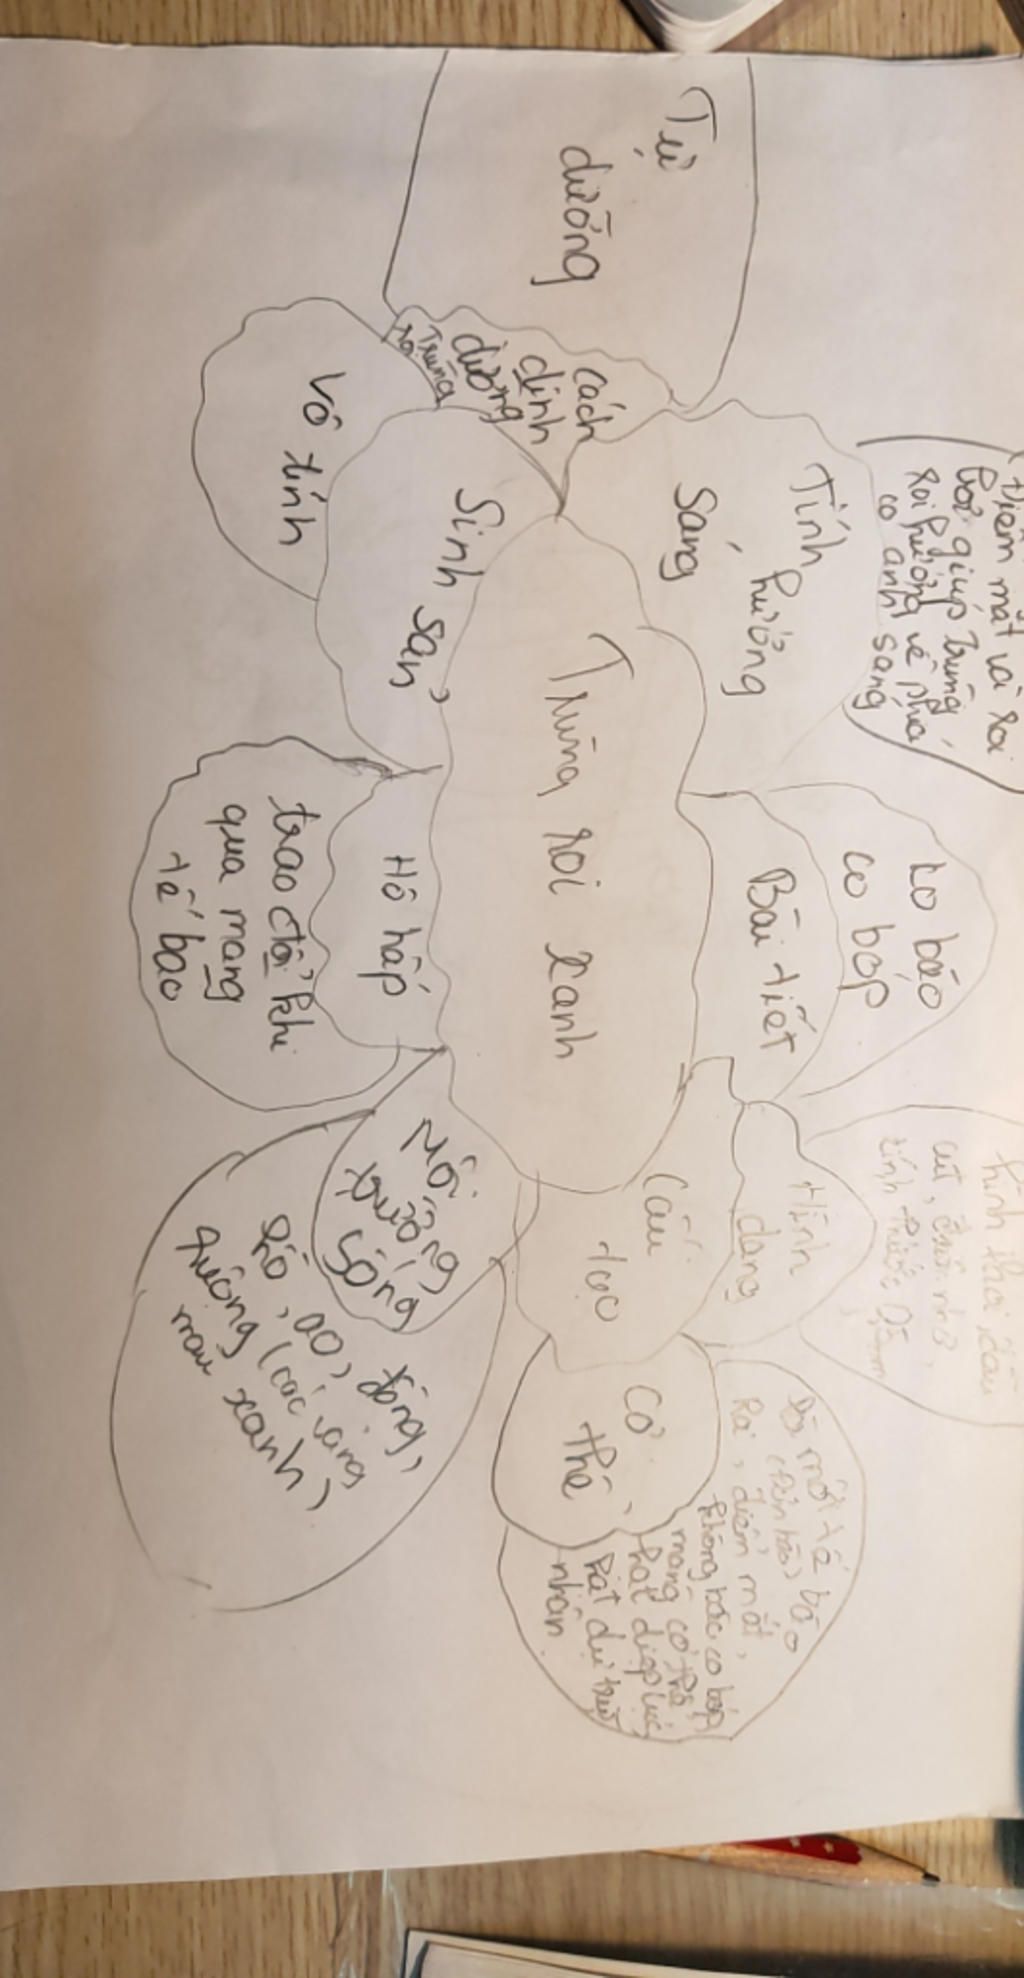 Trùng roi xanh
Tự
dưỡng
cách
dinh
dưỡng
Trùng
roi
Tính
hướng
sáng
Điểm mắt và roi
bơi giúp trùng
roi hướng về phía
có anh sáng
Bài tiết
ko bào
co bóp
Cấu
tạo
Hình
dạng
hình thoi, đầu
Cơ
thể
một tế bào
(đơn bào)
Roi, điểm mắt,
không bào co bóp
màng cơ thể,
hạt diệp lục
hạt dự trữ
nhân.
Môi
trường
sống
hồ, ao, đồng,
ruộng (các váng
màu xanh)
Hô hấp
trao đổi khi
qua mang
tế bào
Sinh sản
Vô tính